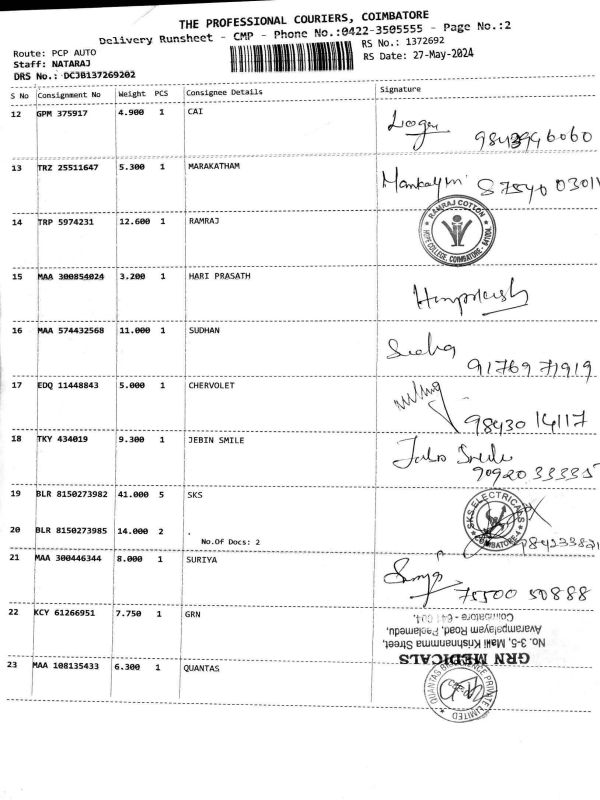 THE PROFESSIONAL COURIERS, COIMBATORE
Delivery Runsheet - CMP - Phone No.:0422-3505555 - Page No.:2
Route: PCP AUTO
RS No.: 1372692
Staff: NATARAJ
RS Date: 27-May-2024
DRS No.: DCJB137269202
S No Consignment No Weight PCS Consignee Details Signature
12 GPM 375917 4.900 1 CAI
13 TRZ 25511647 5.300 1 MARAKATHAM
14 TRP 5974231 12.600 1 RAMRAJ
RAMRAJ COTTON
HOPE COLLEGE, COIMBATORE
15 MAA 300854024 3.200 1 HARI PRASATH
16 MAA 574432568 11.000 1 SUDHAN
91769 71919
17 EDQ 11448843 5.000 1 CHERVOLET
98430 14117
18 TKY 434019 9.300 1 JEBIN SMILE
90920 33335
19 BLR 8150273982 41.000 5 SKS
SKS ELECTRICALS
COIMBATORE-4
20 BLR 8150273985 14.000 2 .
No.Of Docs: 2
21 MAA 300446344 8.000 1 SURIYA
75500 50888
22 KCY 61266951 7.750 1 GRN
GRN MEDICALS
No. 3-5, Malli Krishnanamma Street,
Avarampalayam Road, Peelamedu,
Coimbatore - 641 004.
23 MAA 108135433 6.300 1 QUANTAS
PRIVATE LIMITED